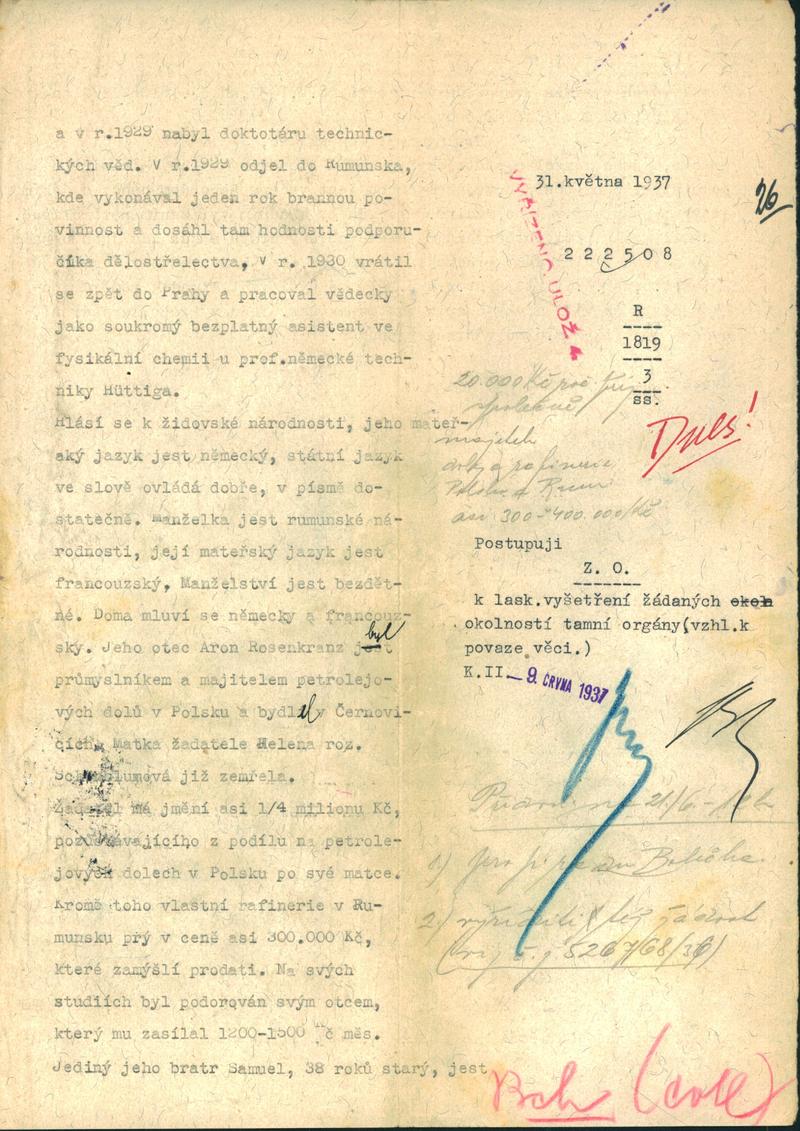 a v r.1929 nabyl doktotáru technic-
kých věd. V r.1929 odjel do Rumunska,
kde vykonával jeden rok brannou po-
vinnost a dosáhl tam hodnosti podporu-
číka dělostřelectva, V r. 1930 vrátil
se zpět do Prahy a pracoval vědecky
jako soukromý bezplatný asistent ve
fysikální chemii u prof.německé tech-
niky Hüttiga.
Hlásí se k židovské národnosti, jeho mateř-
ský jazyk jest německý, státní jazyk
ve slově ovládá dobře, v písmě do-
statečně. Manželka jest rumunské ná-
rodnosti, její mateřský jazyk jest
francouzský, Manželství jest bezdět-
né. Doma mluví se německy a francouz-
sky. Jeho otec Aron Rosenkranz jest byl
průmyslníkem a majitelem petrolejo-
vých dolů v Polsku a bydlel v Černovi-
cích. Matka žadatele Helena roz.
již zemřela.
Žadatel má jmění asi 1/4 milionu Kč,
pozůstávajícího z podílu na petrole-
jových dolech v Polsku po své matce.
Kromě toho vlastní rafinerie v Ru-
munsku prý v ceně asi 300.000 Kč,
které zamýšlí prodati. Na svých
studiích byl podorován svým otcem,
který mu zasílal 1200-1500 Kč měs.
Jediný jeho bratr Samuel, 38 roků starý, jest
31.května 1937
26
VYŘÍZENO ULOŽ
222508
R
1819
3
ss.
20.000 Kč
majitel
doly a rafinerie
Polsko a Rum
asi 300-400.000 Kč
Dnes!
Postupuji
Z. O.
k lask.vyšetření žádaných okoln
okolností tamní orgány(vzhl.k
povaze věci.)
K.II. - 9. ČRVNA 1937
21/6.
1)
2) též žádost